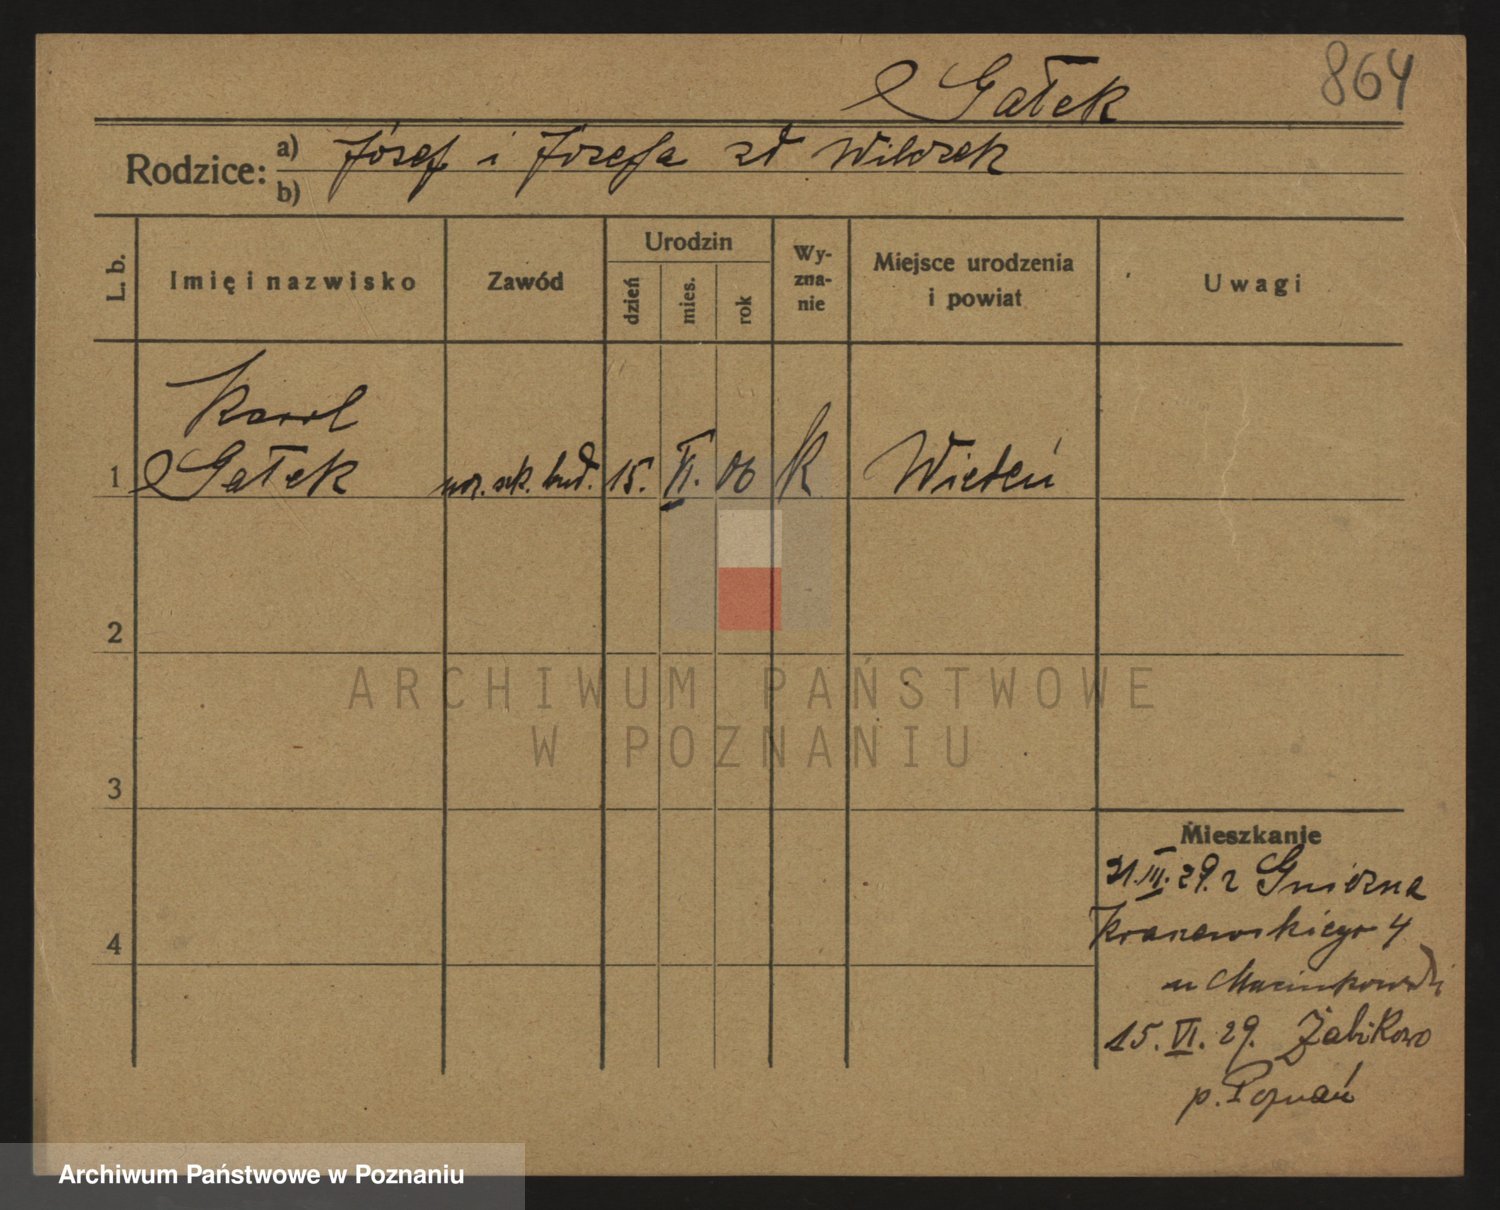 864
Gałek
Rodzice: a) Józef i Józefa zd Wilczek
b)
L. b. Imię i nazwisko Zawód Urodzin dzień mies. rok Wy-zna-nie Miejsce urodzenia i powiat Uwagi
Karol
1 Gałek ucz. szk. bud. 15. VI. 06 k Wiedeń
2
ARCHIWUM PAŃSTWOWE
W POZNANIU
3
Mieszkanie
21. III. 29. z Gniezna
4 Kraszewskiego 4
u Marcinkowski
15. VI. 29. Żabikowo
p. Poznań
Archiwum Państwowe w Poznaniu